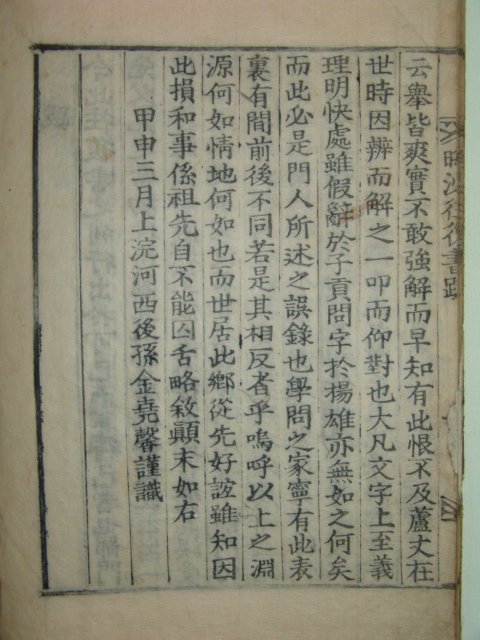 云舉皆爽實不敢強解而早知有此恨不及蘆丈在
世時因辨而解之一叩而仰對也大凡文字上至義
理明快處雖假辭於子貢問字於揚雄亦無如之何矣
而此必是門人所述之誤錄也學問之家寧有此表
裏有間前後不同若是其相反者乎嗚呼以上之淵
源何如情地何如也而世居此鄉從先好誼雖知因
此損和事係祖先自不能囚舌略敘顚末如右
甲申三月上浣河西後孫金堯馨謹識
往復書跋